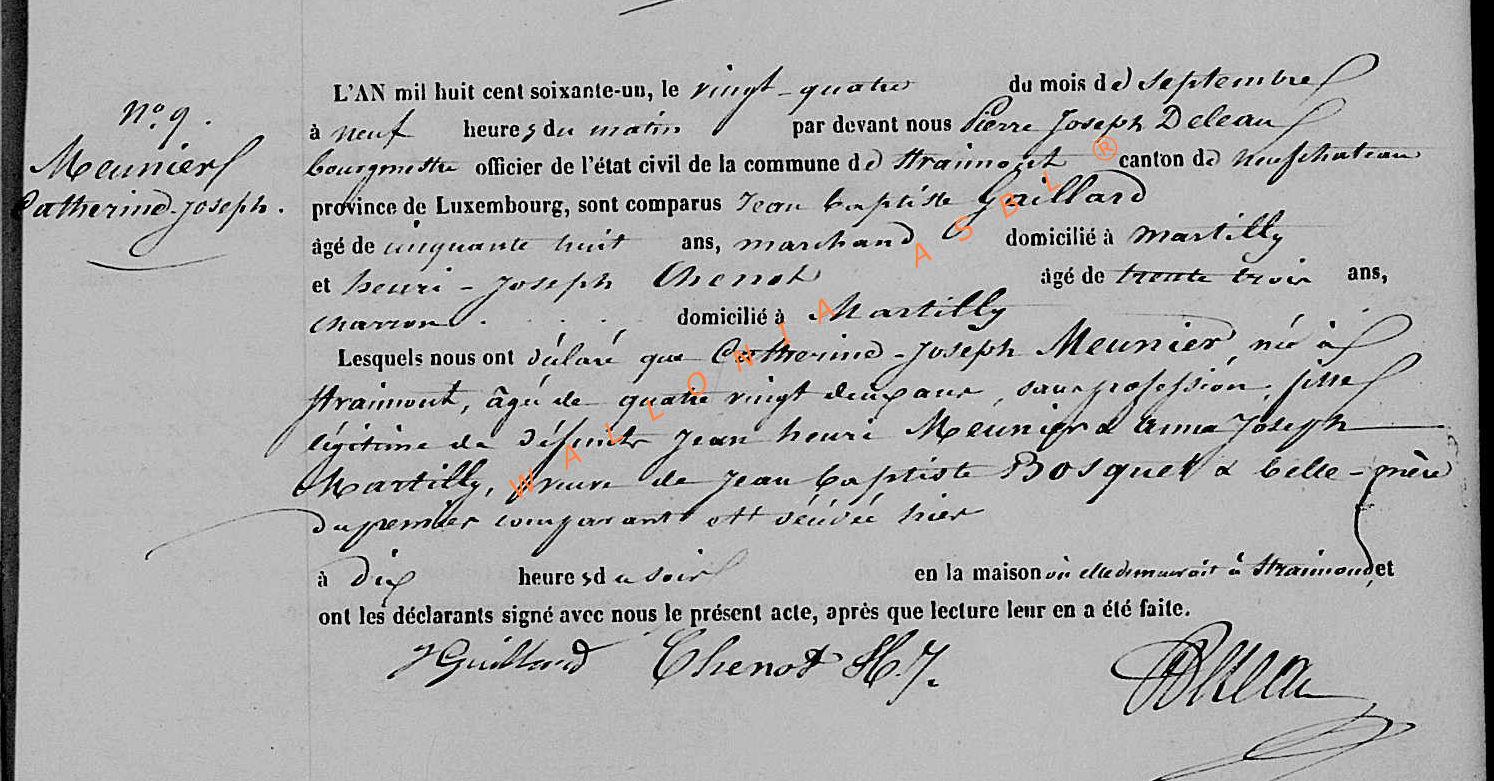 n.o 9.
Meunier
Catherine-Joseph.
L'AN mil huit cent soixante-un, le vingt-quatre du mois de septembre
à neuf heures du matin par devant nous Pierre Joseph Deleau
bourgmestre officier de l'état civil de la commune de straimont canton de neufchateau
province de Luxembourg, sont comparus Jean baptiste Gaillard
âgé de cinquante huit ans, marchand domicilié à martilly
et henri-Joseph Chenot âgé de trente trois ans,
charron domicilié à Martilly
Lesquels nous ont déclaré que Catherine-Joseph Meunier, née à
straimont, âgée de quatre vingt deux ans, sans profession, fille
légitime de défunts Jean henri Meunier & anne Joseph
Martilly, veuve de Jean baptiste Bosquet & belle-mère
du premier comparant est décédée hier
à dix heures du soir en la maison où elle demeurait à straimont, et
ont les déclarants signé avec nous le présent acte, après que lecture leur en a été faite.
JGaillard Chenot H.J. Deleau
WALLONIA ASBL ®